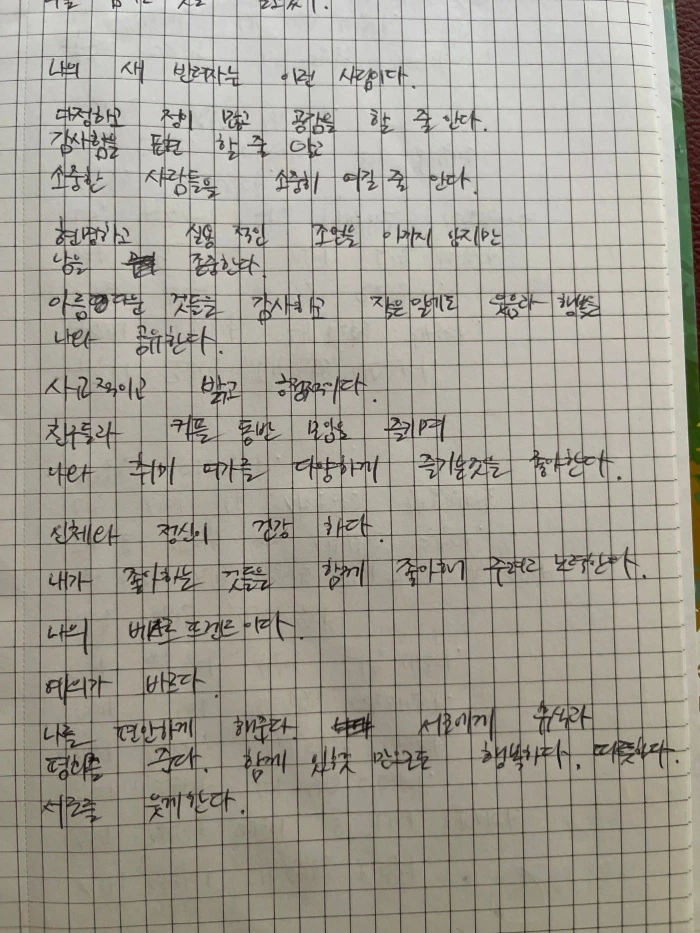 나의 새 반려자는 이런 사람이다.
다정하고 정이 많고 공감을 할 줄 안다.
감사함을 표현 할 줄 알고
소중한 사람들을 소중히 여길 줄 안다.
현명하고 실용적인 조언을 아끼지 않지만
남을 존중한다.
아름다운 것들을 감사하고 작은 일에도 웃음과 행복을
나와 공유한다.
사교적이고 밝고 긍정적이다.
친구들과 커플 동반 모임을 즐기며
나와 취미 여가를 다양하게 즐기를 좋아한다.
신체와 정신이 건강 하다.
내가 좋아하는 것들을 함께 좋아해 주려고 노력한다.
나의 베스트 프렌드이다.
예의가 바르다.
나를 편안하게 해준다. 서로에게 휴식과
평화를 준다. 함께 있는것 만으로도 행복하다. 따뜻하다.
서로를 웃게한다.